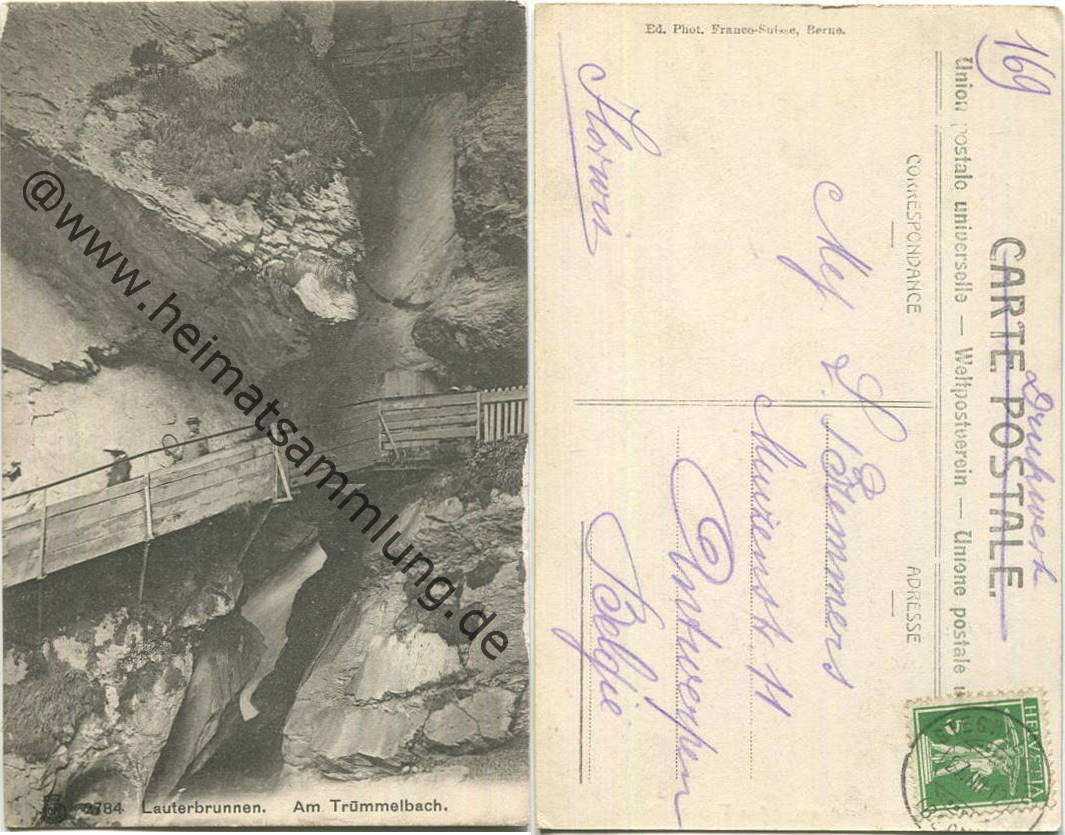 @www.heimatsammlung.de
2784 Lauterbrunnen. Am Trümmelbach.
Ed. Phot. Franco-Suisse, Berne.
169
CARTE POSTALE.
Drukwerk
Union postale universelle — Weltpostverein — Unione postale u
CORRESPONDANCE
ADRESSE
Mej.
Antwerpen
Belgie
HELVETIA